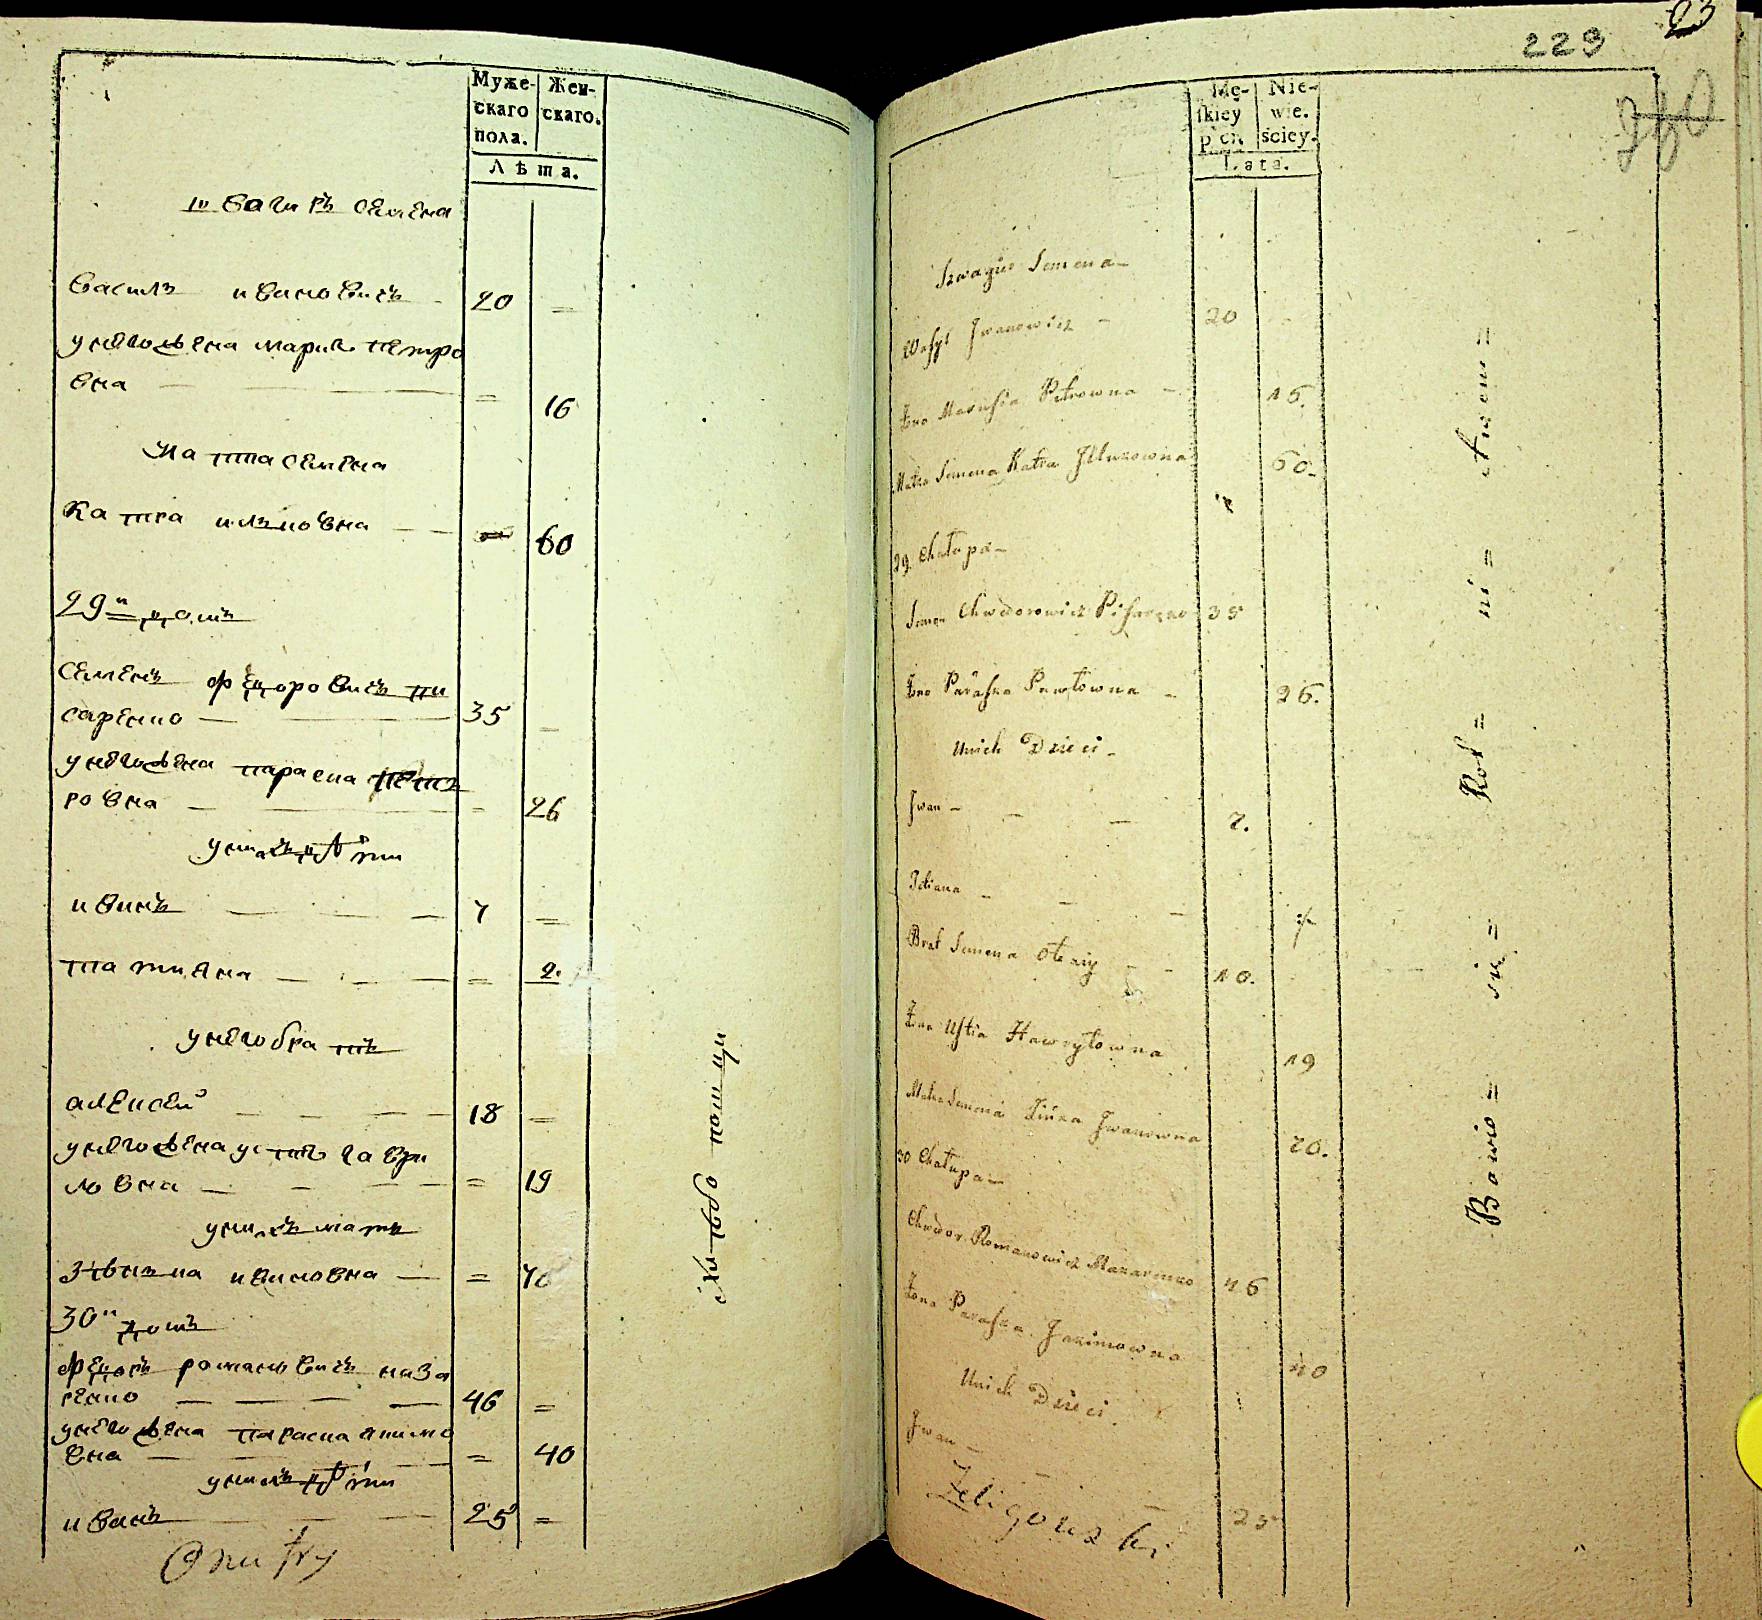 Муже- Жен-
скаго скаго.
пола.
Лѣта.
швагиръ семена
василь ивановичъ - 20 =
унегожена мария петро
вна - = 16
мати семена
катра
60
29й домъ
семенъ федоровичъ пи
саренко - 35 -
унегожена параска
ровна - = 26
унихъ дѣти
иванъ - 7 =
татиана - = 2.
унегобратъ
алексей - 18 =
унегожена устия гаври
ловна - = 19
унихъ мать
зѣнька ивановна - = 70
30й домъ
федоръ романовичъ маза
ренко - 46 =
унегожена параска акимо
вна - = 40
унихъ дѣти
иванъ - 25 =
Onufry
хлѣбопашцы
229
23
Mę- Nie-
skiey wie.
płci. ściey.
Lata.
Szwagier Semena -
Wasyl Jwanowicz - 20
Żona Marusia Petrowna - 16.
Matka Semena Katra 60.
29. Chałupa -
Semen Chwedorowicz Pisarenko 35
Żona Paraska Pawłowna - 26.
Unich Dzieci -
Jwan - 7.
Tetiana -
Brat Semena Olexiy - - 18.
Żona Ustia Hawryłowna 19
Matka Semena Zinka Jwanowna 70.
30 Chałupa -
Chwedor Romanowicz Mazarenko 46
Żona Paraska Jakimowna 40
Unich Dzieci.
Jwan - 25
Zeligowski
Rol = ni =